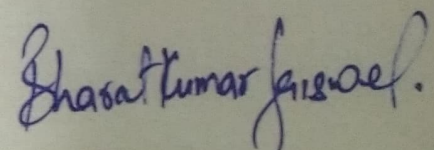 Bharat Kumar Jaiswal.